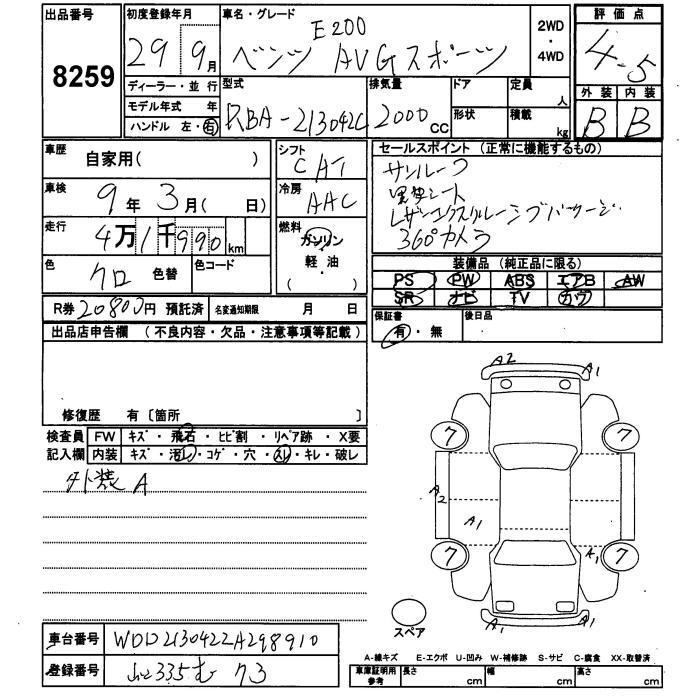 出品番号
8259
初度登録年月
29 9月
車名・グレード
E200
ベンツ AVGスポーツ
2WD
・
4WD
評価点
4.5
外装 内装
B B
ディーラー・並行
モデル年式 年
ハンドル 左・右
型式
RBA-213042C
排気量
2000cc
ドア
形状
定員
人
積載
kg
車歴
自家用( )
車検
9年3月( 日)
走行
4万1千990km
色
クロ 色替
色コード
シフト
CAT
冷房
AAC
燃料
ガソリン
・
軽・油
( )
セールスポイント(正常に機能するもの)
サンルーフ
黒革シート
レザーエクスクルーシブパッケージ
360°カメラ
装備品(純正品に限る)
PS PW ABS エアB AW
SR ナビ TV カワ
R券 20800円 預託済 名変通知期限 月 日
保証書
有・無
後日品
出品店申告欄(不良内容・欠品・注意事項等記載)
修復歴 有〔箇所 〕
検査員 FW キズ・飛石・ヒビ割・リペア跡・X要
記入欄 内装 キズ・汚レ・コゲ・穴・スレ・キレ・破レ
外装 A
A2 A1
7 7
A2 A1
7 A1 7
A1 A1
スペア
車台番号 WDD2130422A298910
登録番号 335 む 73
A-線キズ E-エクボ U-凹み W-補修跡 S-サビ C-腐食 XX-取替済
車庫証明用
参考
長さ cm 幅 cm 高さ cm